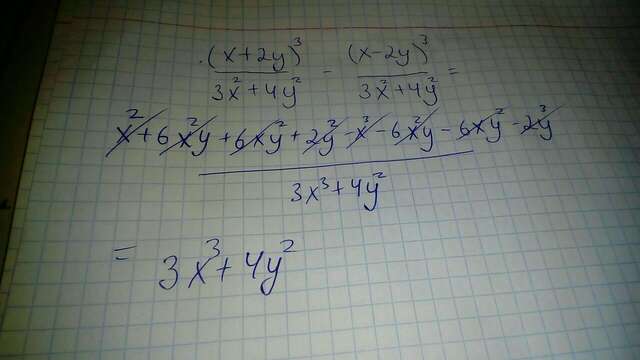 (x+2y)³/(3x²+4y²) - (x-2y)³/(3x²+4y²) =
(x²+6x²y+6xy²+2y²-x³-6x²y-6xy²-2y³)/(3x³+4y²)
= 3x³+4y²